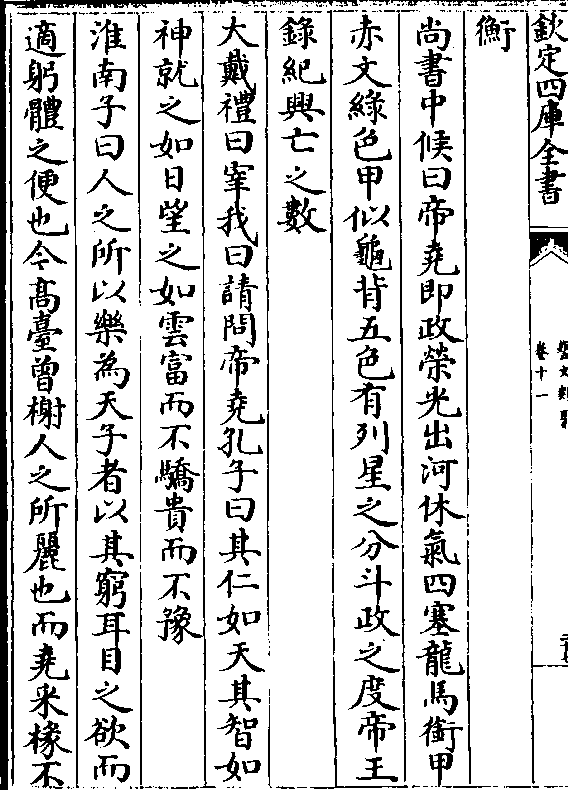 欽定四庫全書
卷十一
衡
尚書中候曰帝堯即政榮光出河休氣四塞龍馬銜甲
赤文綠色甲似龜背五色有列星之分斗政之度帝王
錄紀興亡之數
大戴禮曰宰我曰請問帝堯孔子曰其仁如天其智如
神就之如日望之如雲富而不驕貴而不豫
淮南子曰人之所以樂為天子者以其窮耳目之欲而
適躬體之便也今髙臺曾榭人之所麗也而堯采椽不